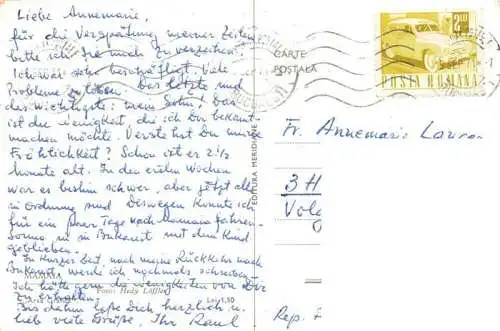 Liebe Annemarie,
für die Verspätung meiner Zeilen
bitte ich Sie mich zu verzeihen.
Ich war sehr beschäftigt. Viele
Probleme zu lösen. Das letzte und
das Wichtigste: mein Sohn! Das
ist die Neuigkeit, die ich Dir bekannt-
machen möchte. Verstehst Du meine
Fröhlichkeit? Schon ist er 2 1/2
Monate alt. In den ersten Wochen
war es schwer, aber jetzt alles
in Ordnung und deswegen konnte ich
für ein Paar Tage nach Mamaia fahren.
ist in Bukarest mit dem Kind
geblieben.
In kurzer Zeit, nach meine Rückkehr nach
Bukarest, werde ich nochmals schreiben.
MAMAIA
Foto: Hedy Löffler
Ich hätte gern die Neuigkeiten von Dir
zu erfahren.
Lei 1,50
Bis dahin lasse Dich herzlich u.
lieb viele Grüße, Ihr Raul
EDITURA MERIDIANE
CARTE
POSTALA
2,40
POSTA ROMANA
Fr. Annemarie
3 H
Rep. F